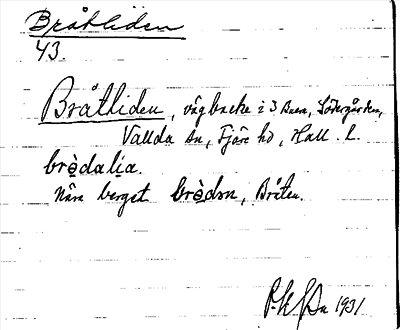 Bråtliden
43.
Bråtliden, vägbacke i 3 Buera, Södergården,
Vallda sn, Fjäre hd, Hall. l.
brèdalia.
Nära berget brèdən, Bråten.
1931